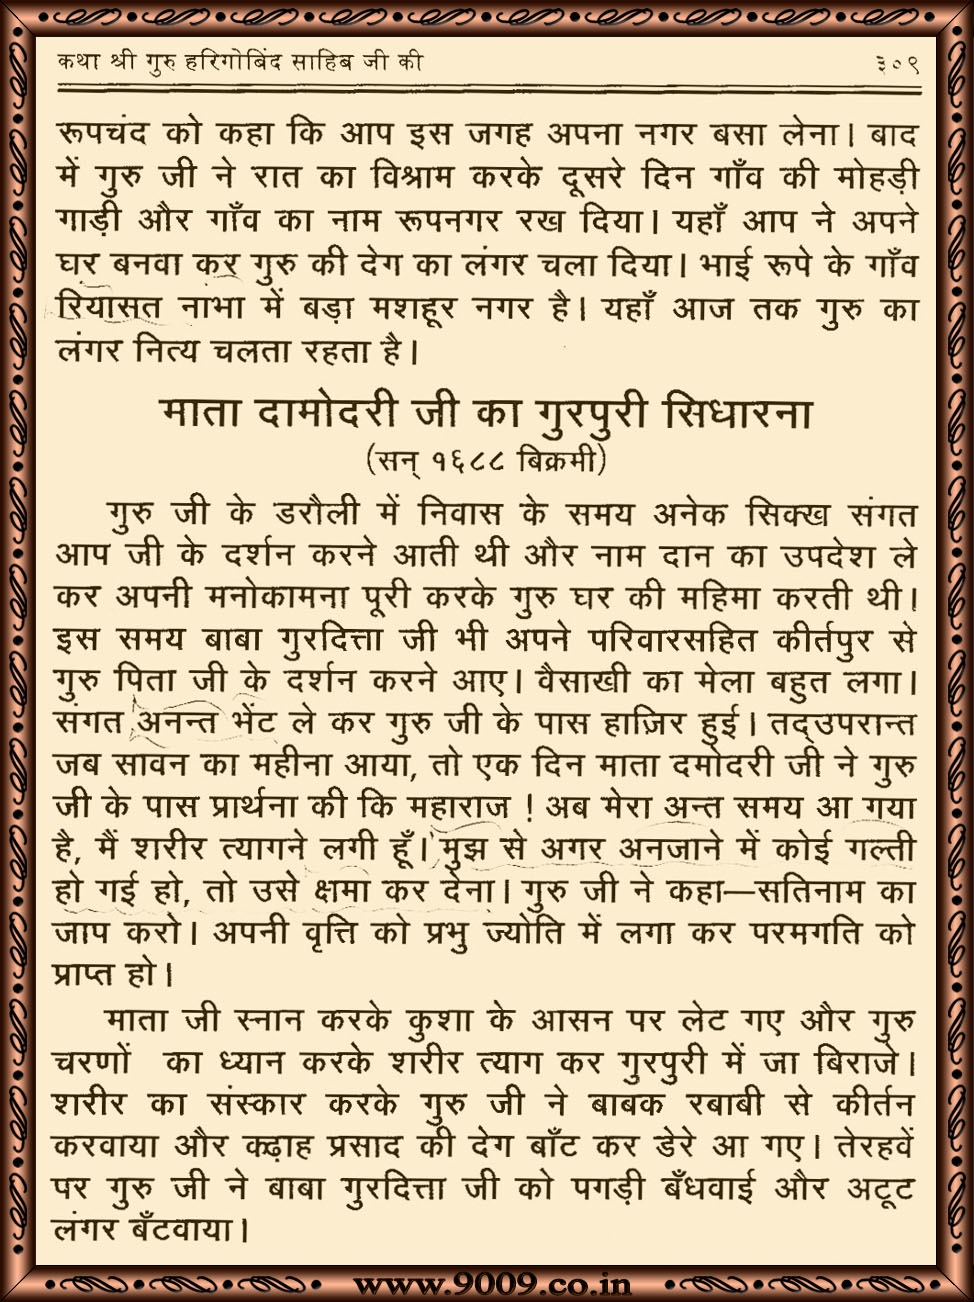 कथा श्री गुरु हरिगोबिंद साहिब जी की ३०९
रूपचंद को कहा कि आप इस जगह अपना नगर बसा लेना। बाद
में गुरु जी ने रात का विश्राम करके दूसरे दिन गाँव की मोहड़ी
गाड़ी और गाँव का नाम रूपनगर रख दिया। यहाँ आप ने अपने
घर बनवा कर गुरु की देग का लंगर चला दिया। भाई रूपे के गाँव
रियासत नाभा में बड़ा मशहूर नगर है। यहाँ आज तक गुरु का
लंगर नित्य चलता रहता है।
माता दामोदरी जी का गुरपुरी सिधारना
(सन् १६८८ बिक्रमी)
गुरु जी के डरौली में निवास के समय अनेक सिक्ख संगत
आप जी के दर्शन करने आती थी और नाम दान का उपदेश ले
कर अपनी मनोकामना पूरी करके गुरु घर की महिमा करती थी।
इस समय बाबा गुरदित्ता जी भी अपने परिवारसहित कीर्तपुर से
गुरु पिता जी के दर्शन करने आए। वैसाखी का मेला बहुत लगा।
संगत अनन्त भेंट ले कर गुरु जी के पास हाज़िर हुई। तद्उपरान्त
जब सावन का महीना आया, तो एक दिन माता दमोदरी जी ने गुरु
जी के पास प्रार्थना की कि महाराज ! अब मेरा अन्त समय आ गया
है, मैं शरीर त्यागने लगी हूँ। मुझ से अगर अनजाने में कोई गल्ती
हो गई हो, तो उसे क्षमा कर देना। गुरु जी ने कहा—सतिनाम का
जाप करो। अपनी वृत्ति को प्रभु ज्योति में लगा कर परमगति को
प्राप्त हो।
माता जी स्नान करके कुशा के आसन पर लेट गए और गुरु
चरणों का ध्यान करके शरीर त्याग कर गुरपुरी में जा बिराजे।
शरीर का संस्कार करके गुरु जी ने बाबक रबाबी से कीर्तन
करवाया और कढ़ाह प्रसाद की देग बाँट कर डेरे आ गए। तेरहवें
पर गुरु जी ने बाबा गुरदित्ता जी को पगड़ी बँधवाई और अटूट
लंगर बँटवाया।
www.9009.co.in